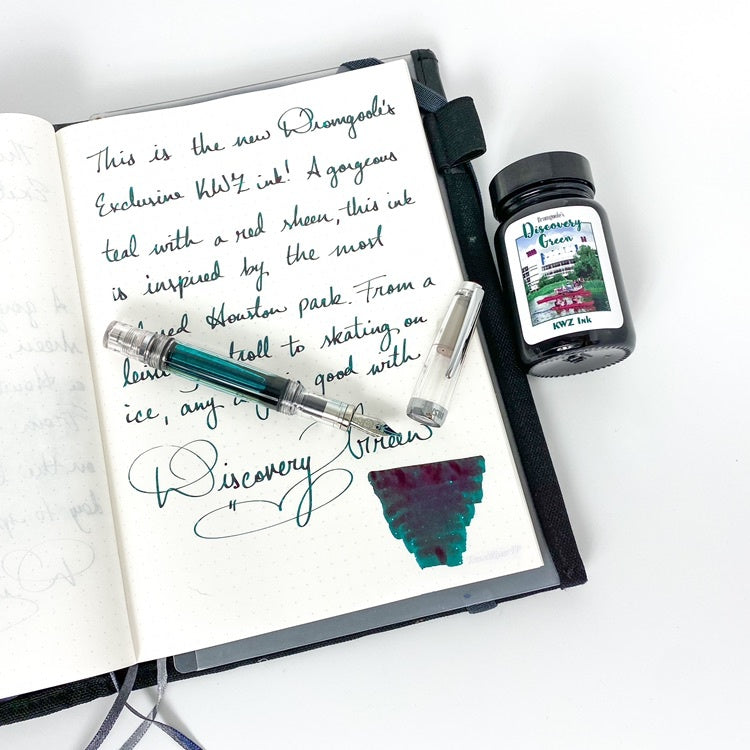 This is the new Dromgoole's
Exclusive KWZ ink! A gorgeous
teal with a red sheen, this ink
is inspired by the most
Houston park. From a
to skating on
ice, any good with
Discovery Green
Dromgoole's
Discovery
Green
KWZ Ink